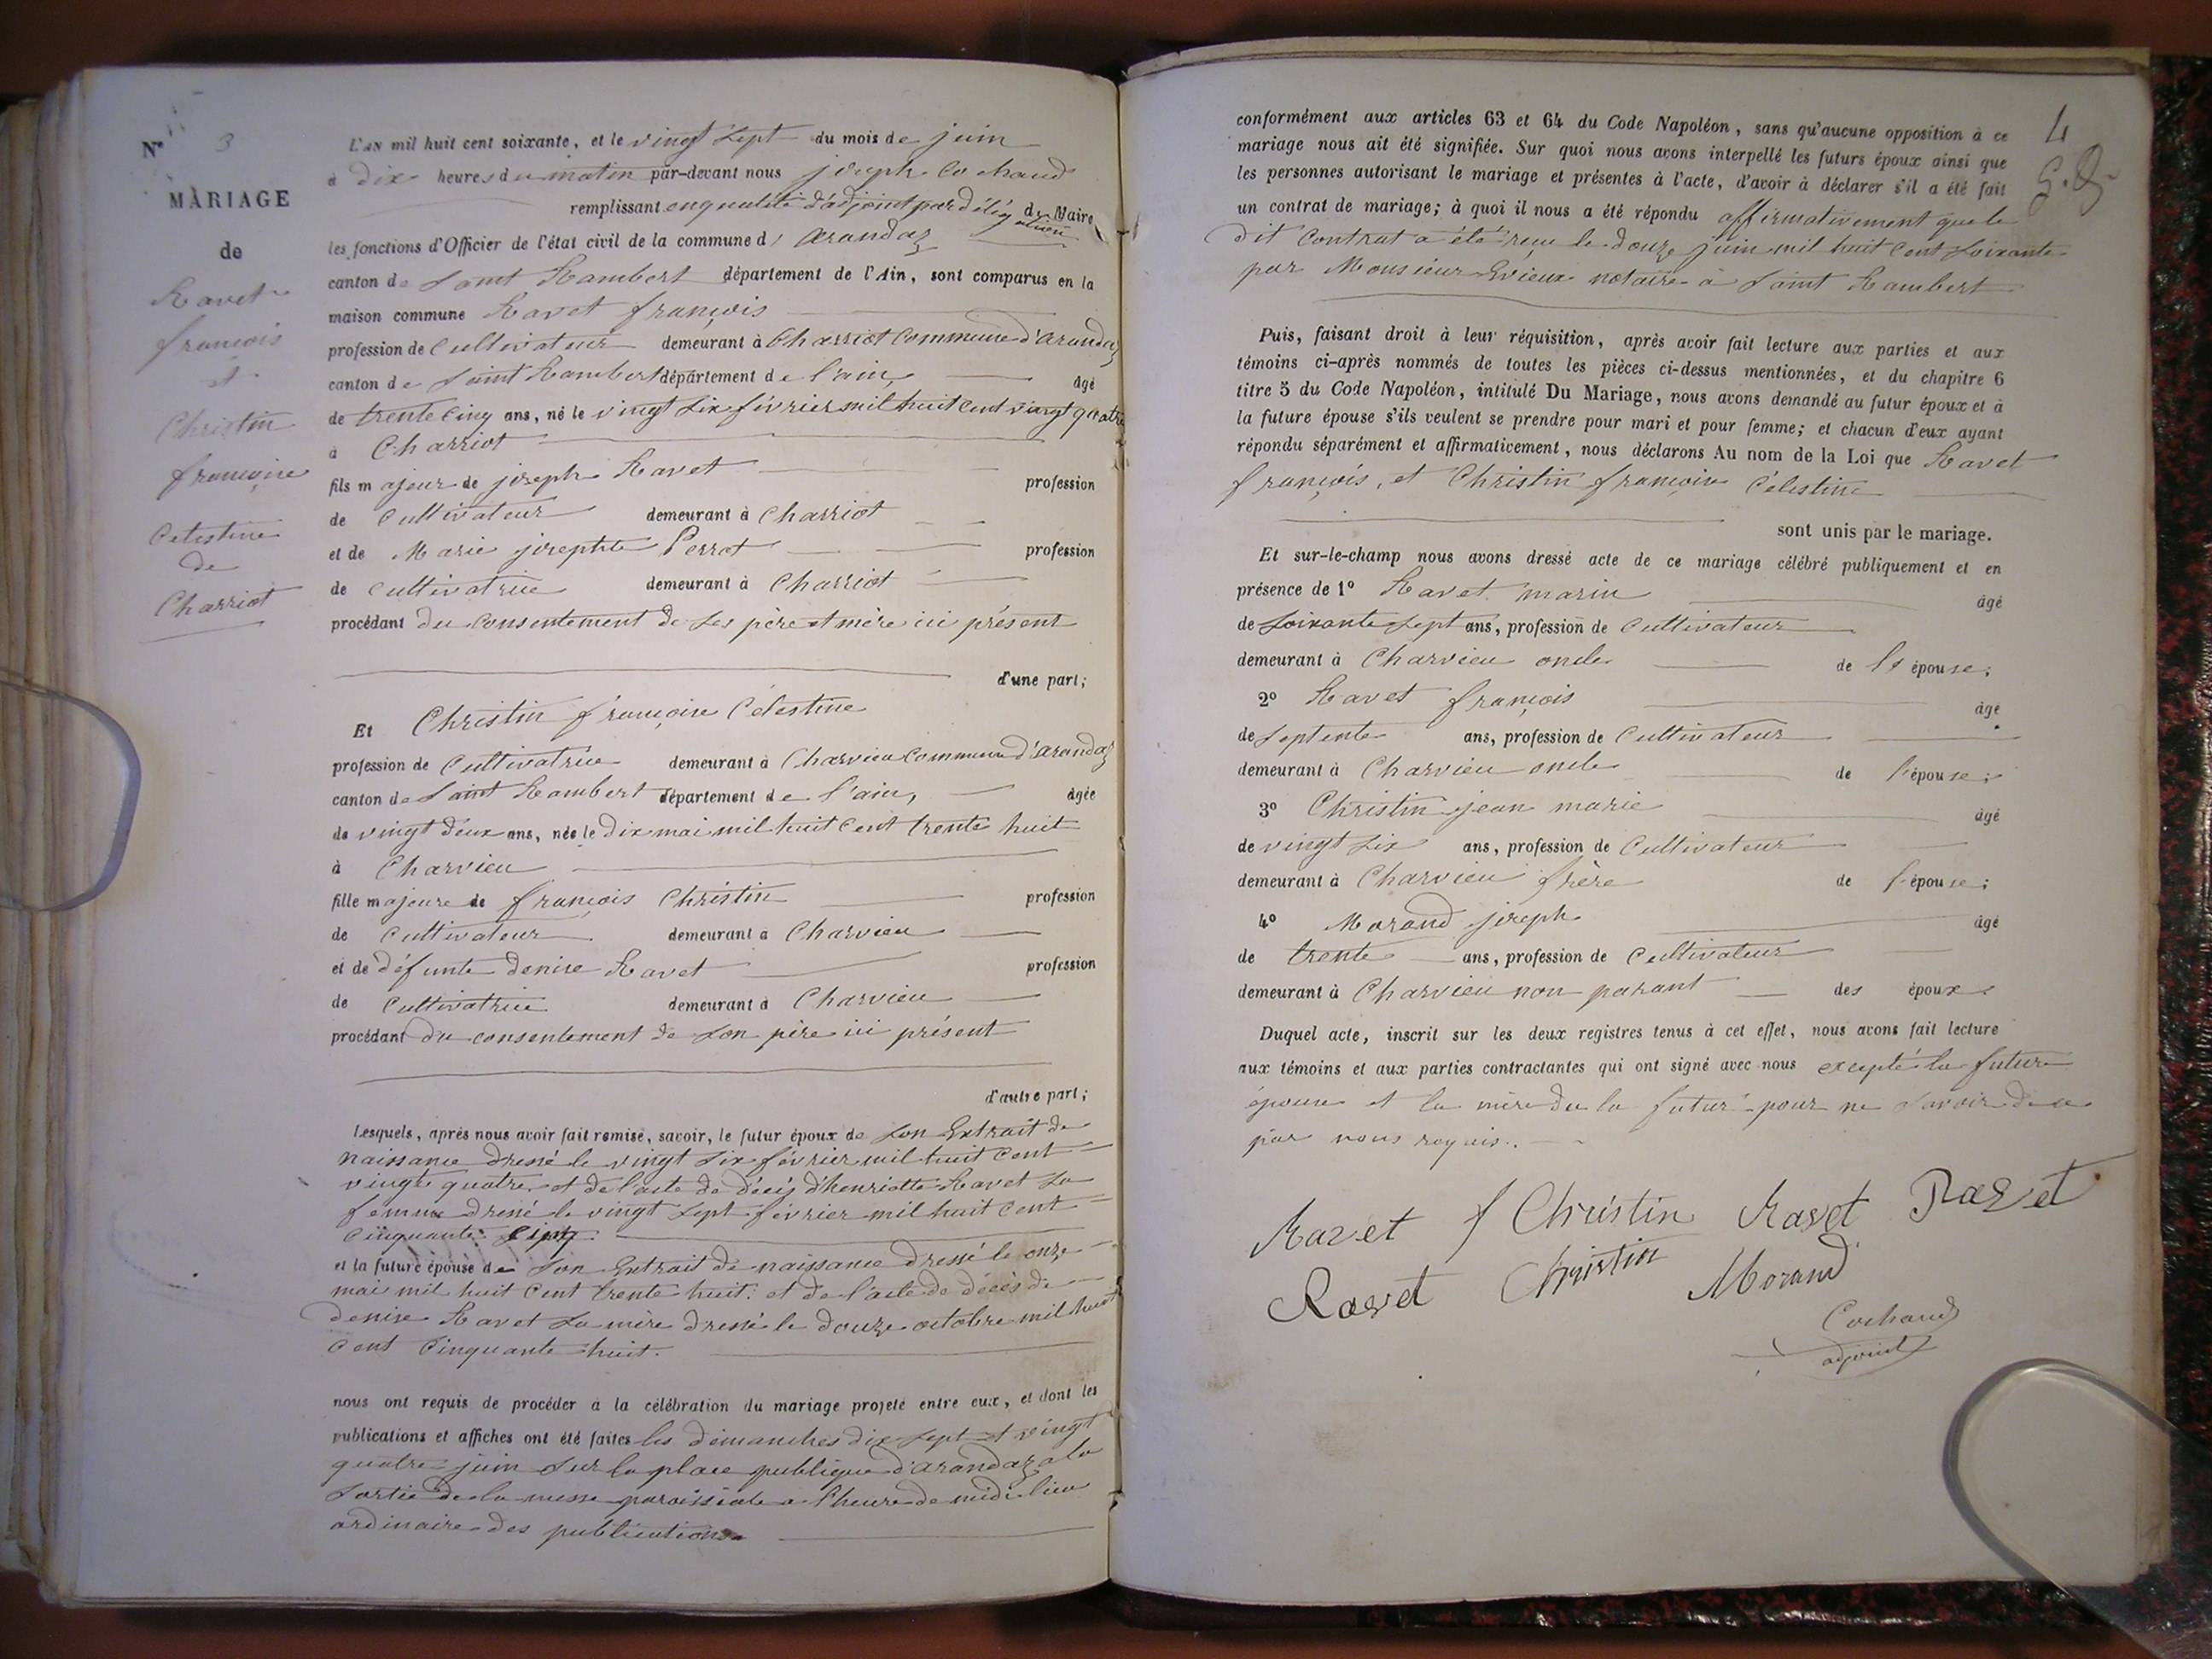 N° 3
MARIAGE
de
Ravet
françois
et
Christin
françoise
Celestine
de
Charriot
L'AN mil huit cent soixante, et le vingt sept du mois de juin
à dix heures du matin par-devant nous joseph Cochaud
remplissant en qualité d'adjoint par délégation de Maire
les fonctions d'Officier de l'état civil de la commune d'arandaz
canton de Saint Rambert département de l'Ain, sont comparus en la
maison commune Ravet françois
profession de Cultivateur demeurant à Charriot Commune d'arandaz
canton de Saint Rambert département de l'ain, âgé
de trente cinq ans, né le vingt six février mil huit cent vingt quatre
à Charriot
fils majeur de joseph Ravet profession
de Cultivateur demeurant à Charriot
et de Marie josephte Perrot profession
de Cultivatrice demeurant à Charriot
procédant du consentement de ses père et mère ici présent
d'une part;
Et Christin françoise Célestine
profession de Cultivatrice demeurant à Charvieu Commune d'arandaz
canton de Saint Rambert département de l'ain, âgée
de vingt deux ans, née le dix mai mil huit cent trente huit
à Charvieu
fille majeure de françois Christin profession
de Cultivateur demeurant à Charvieu
et de défunte denise Ravet profession
de Cultivatrice demeurant à Charvieu
procédant du consentement de son père ici présent
d'autre part;
Lesquels, après nous avoir fait remise, savoir, le futur époux de son Extrait de
naissance dressé le vingt six février mil huit cent
vingt quatre et de l'acte de décès d'henriette Ravet sa
femme dressé le vingt sept février mil huit cent
cinquante cinq
et la future épouse de son Extrait de naissance dressé le onze
mai mil huit cent trente huit. et de l'acte de décès de
denise Ravet sa mère dressé le douze octobre mil huit
cent cinquante huit.
nous ont requis de procéder à la célébration du mariage projeté entre eux, et dont les
publications et affiches ont été faites les dimanches dix sept et vingt
quatre juin sur la place publique d'arandaz a la
sortie de la messe paroissiale a l'heure de midi lieu
ordinaire des publications
4
conformément aux articles 63 et 64 du Code Napoléon, sans qu'aucune opposition à ce
mariage nous ait été signifiée. Sur quoi nous avons interpellé les futurs époux ainsi que
les personnes autorisant le mariage et présentes à l'acte, d'avoir à déclarer s'il a été fait
un contrat de mariage; à quoi il nous a été répondu affirmativement que le
dit Contrat a été reçu le douze juin mil huit cent soixante
par Monsieur Evieux notaire à Saint Rambert
Puis, faisant droit à leur réquisition, après avoir fait lecture aux parties et aux
témoins ci-après nommés de toutes les pièces ci-dessus mentionnées, et du chapitre 6
titre 5 du Code Napoléon, intitulé Du Mariage, nous avons demandé au futur époux et à
la future épouse s'ils veulent se prendre pour mari et pour femme; et chacun d'eux ayant
répondu séparément et affirmativement, nous déclarons Au nom de la Loi que Ravet
françois, et Christin françoise Célestine
sont unis par le mariage.
Et sur-le-champ nous avons dressé acte de ce mariage célébré publiquement et en
présence de 1° Ravet marin âgé
de soixante sept ans, profession de Cultivateur
demeurant à Charvieu oncle de l'épouse;
2° Ravet françois âgé
de septente ans, profession de Cultivateur
demeurant à Charvieu oncle de l'épouse;
3° Christin jean marie âgé
de vingt six ans, profession de Cultivateur
demeurant à Charvieu frère de l'épouse;
4° Morand joseph âgé
de trente ans, profession de Cultivateur
demeurant à Charvieu non parant des époux
Duquel acte, inscrit sur les deux registres tenus à cet effet, nous avons fait lecture
aux témoins et aux parties contractantes qui ont signé avec nous excepté la future
épouse et la mère du la futur pour ne savoir de ce
par nous requis.
Ravet f Christin Ravet Ravet
Ravet Christin Morand
Cochaud
adjoint